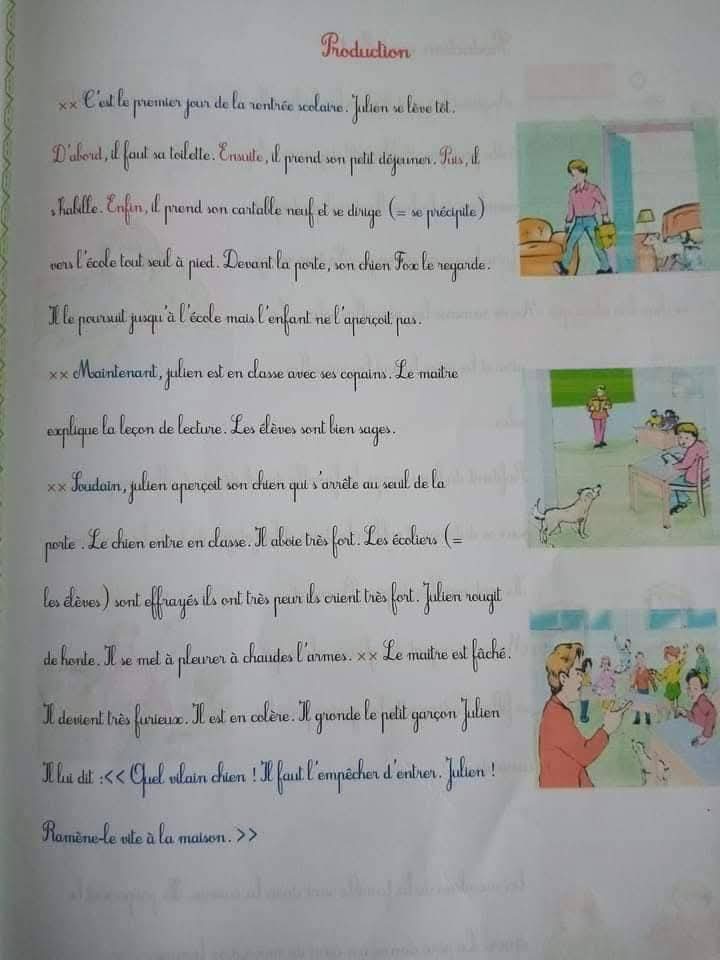 Production
×× C'est le premier jour de la rentrée scolaire. Julien se lève tôt.
D'abord, il faut sa toilette. Ensuite, il prend son petit déjeuner. Puis, il
s'habille. Enfin, il prend son cartable neuf et se dirige (= se précipite)
vers l'école tout seul à pied. Devant la porte, son chien Fox le regarde.
Il le poursuit jusqu'à l'école mais l'enfant ne l'aperçoit pas.
×× Maintenant, julien est en classe avec ses copains. Le maitre
explique la leçon de lecture. Les élèves sont bien sages.
×× Soudain, julien aperçoit son chien qui s'arrête au seuil de la
porte . Le chien entre en classe. Il aboie très fort. Les écoliers (=
les élèves) sont effrayés ils ont très peur ils crient très fort. Julien rougit
de honte. Il se met à pleurer à chaudes l'armes. ×× Le maitre est fâché.
Il devient très furieux. Il est en colère. Il gronde le petit garçon Julien
Il lui dit :<< Quel vilain chien ! Il faut l'empêcher d'entrer. Julien !
Ramène-le vite à la maison. >>